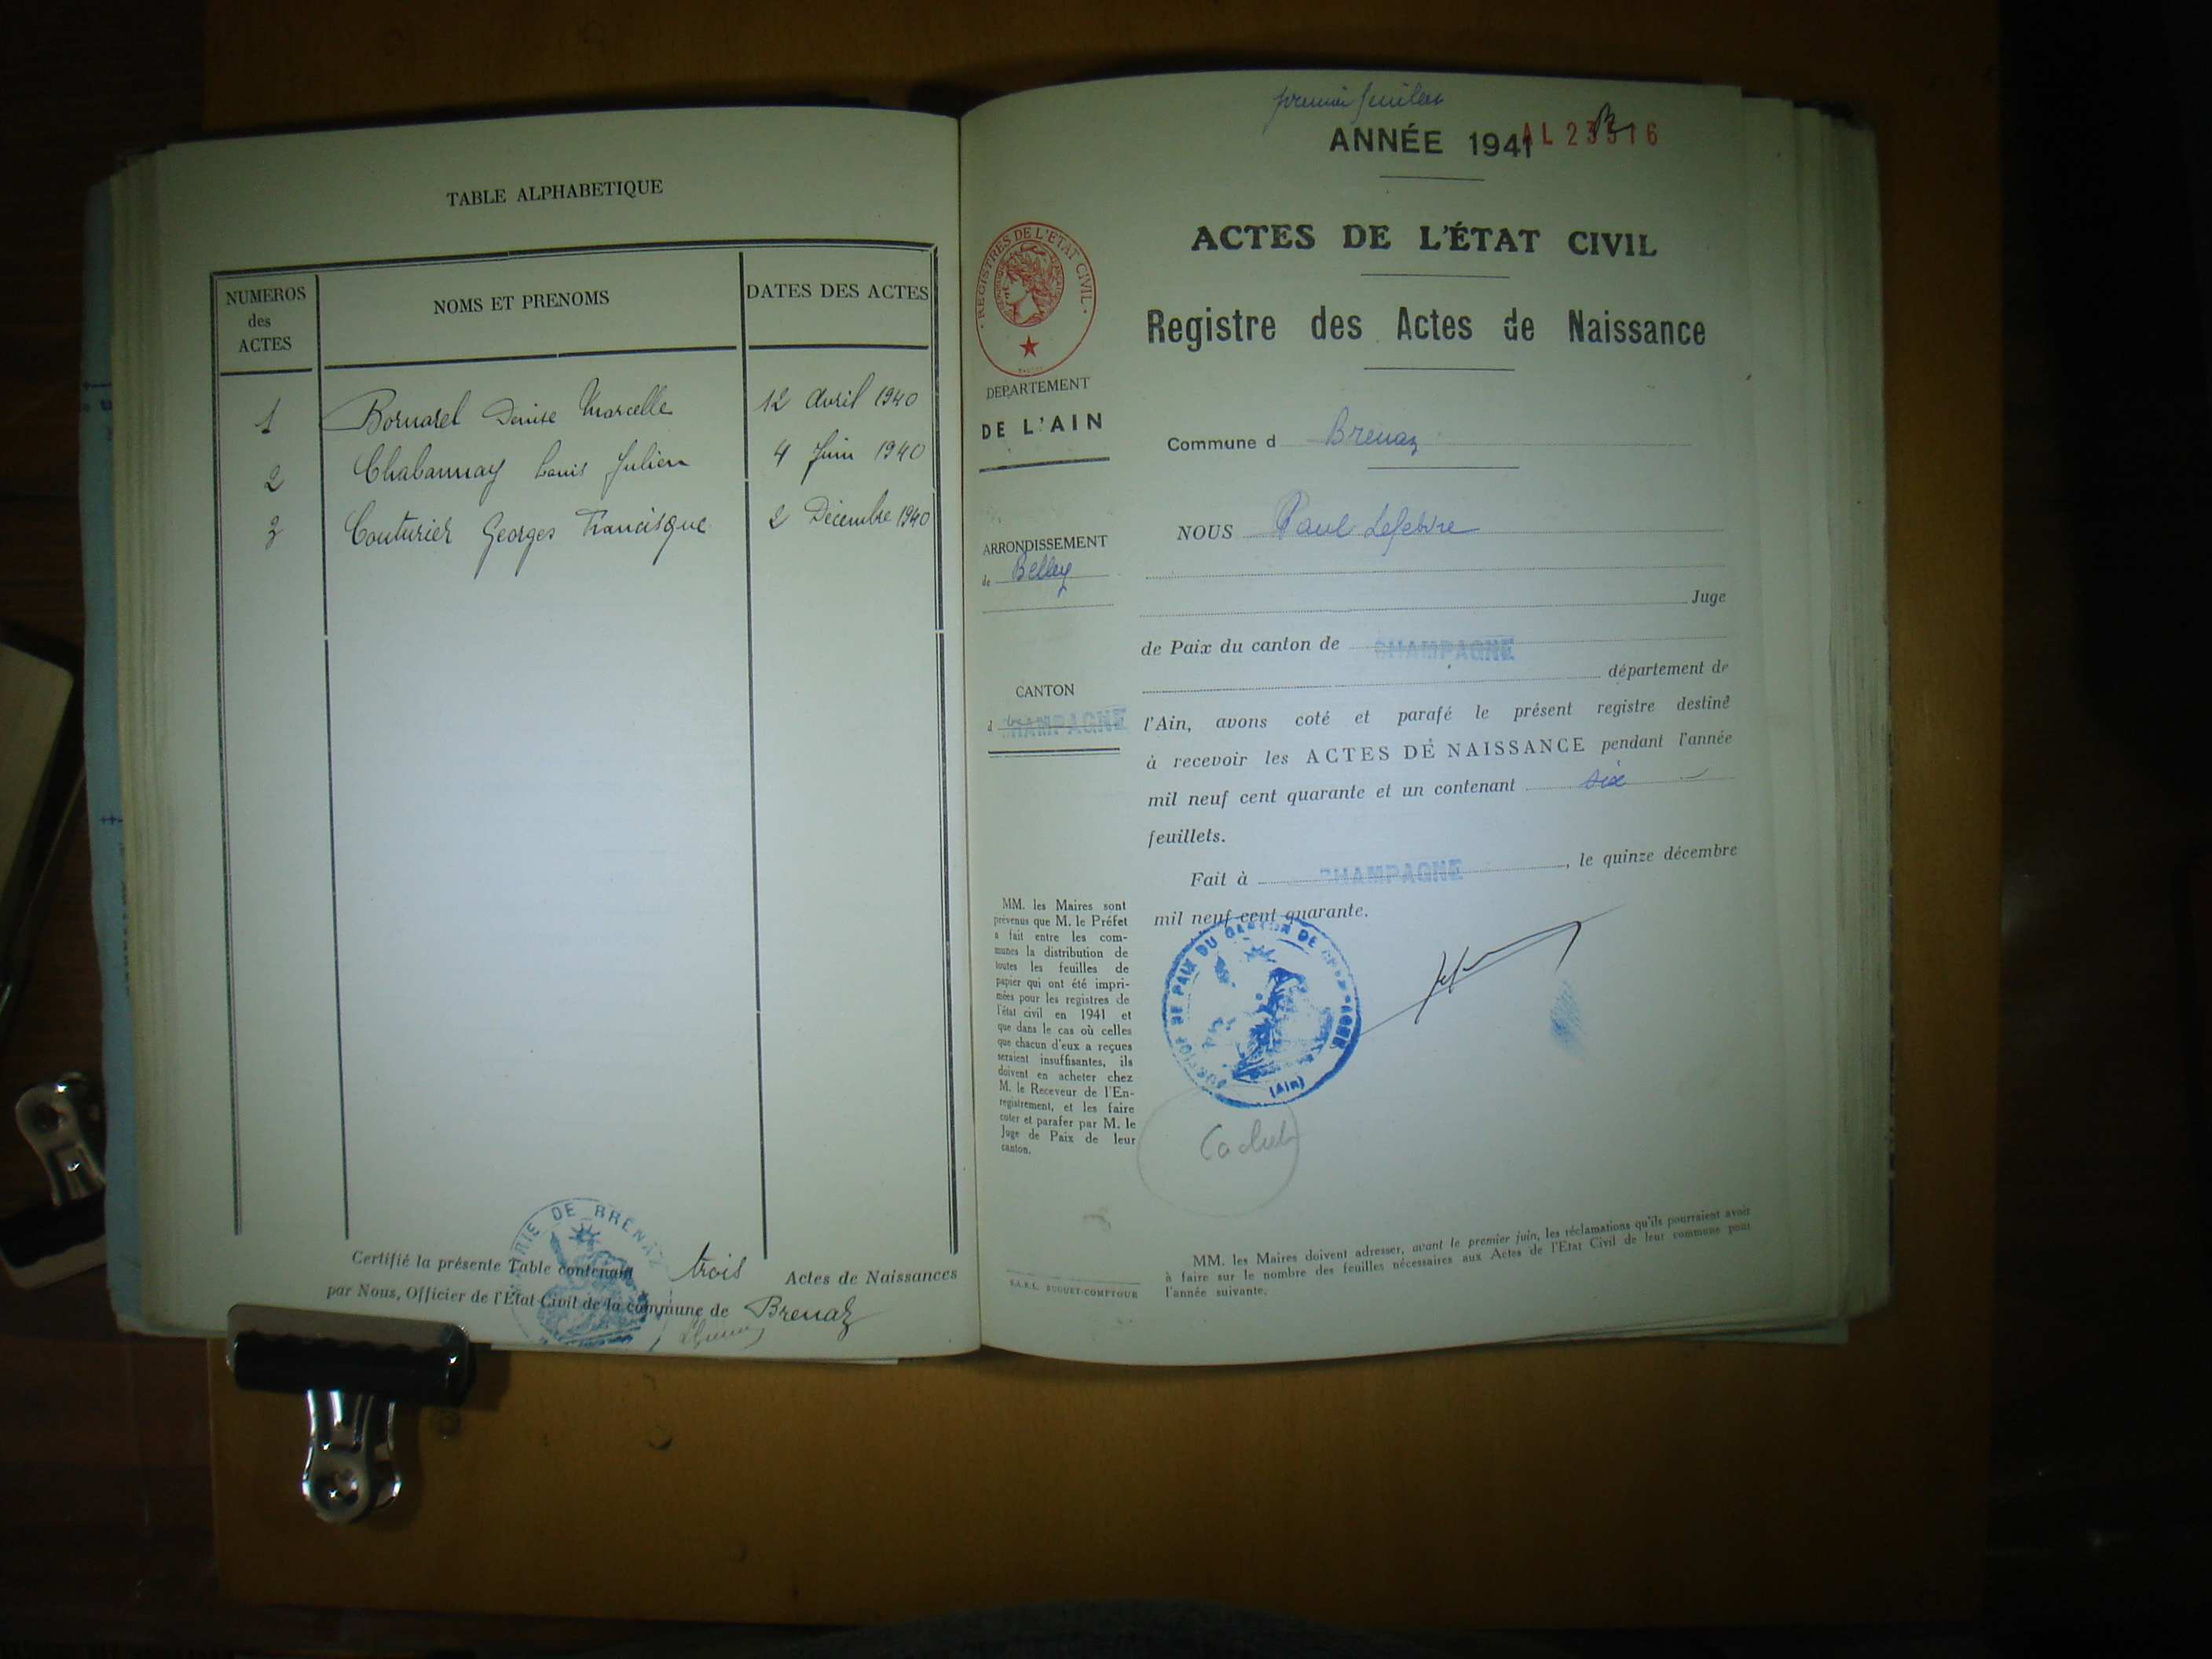 TABLE ALPHABETIQUE
NUMEROS
des
ACTES
NOMS ET PRENOMS
DATES DES ACTES
1 Bornarel Denise Marcelle 12 Avril 1940
2 Chabannay Louis Julien 4 Juin 1940
3 Couturier Georges Francisque 2 Décembre 1940
MAIRIE DE BRENAZ
Certifié la présente Table contenant trois Actes de Naissances
par Nous, Officier de l'État Civil de la commune de Brenaz
premier feuillet
ANNÉE 1941
REGISTRES DE L'ETAT CIVIL
ACTES DE L'ÉTAT CIVIL
Registre des Actes de Naissance
DEPARTEMENT
DE L'AIN
Commune d Brenaz
NOUS Paul Lefebvre
ARRONDISSEMENT
de Belley
Juge
de Paix du canton de CHAMPAGNE
département de
CANTON
d CHAMPAGNE
l'Ain, avons coté et parafé le présent registre destiné
à recevoir les ACTES DE NAISSANCE pendant l'année
mil neuf cent quarante et un contenant six
feuillets.
Fait à CHAMPAGNE, le quinze décembre
mil neuf cent quarante.
MM. les Maires sont
prévenus que M. le Préfet
a fait entre les com-
munes la distribution de
toutes les feuilles de
papier qui ont été impri-
mées pour les registres de
l'état civil en 1941 et
que dans le cas où celles
que chacun d'eux a reçues
seraient insuffisantes, ils
doivent en acheter chez
M. le Receveur de l'En-
registrement, et les faire
coter et parafer par M. le
Juge de Paix de leur
canton.
JUSTICE DE PAIX DU CANTON DE CHAMPAGNE
(Ain)
Cachet
MM. les Maires doivent adresser, avant le premier juin, les réclamations qu'ils pourraient avoir
à faire sur le nombre des feuilles nécessaires aux Actes de l'Etat Civil de leur commune pour
l'année suivante.